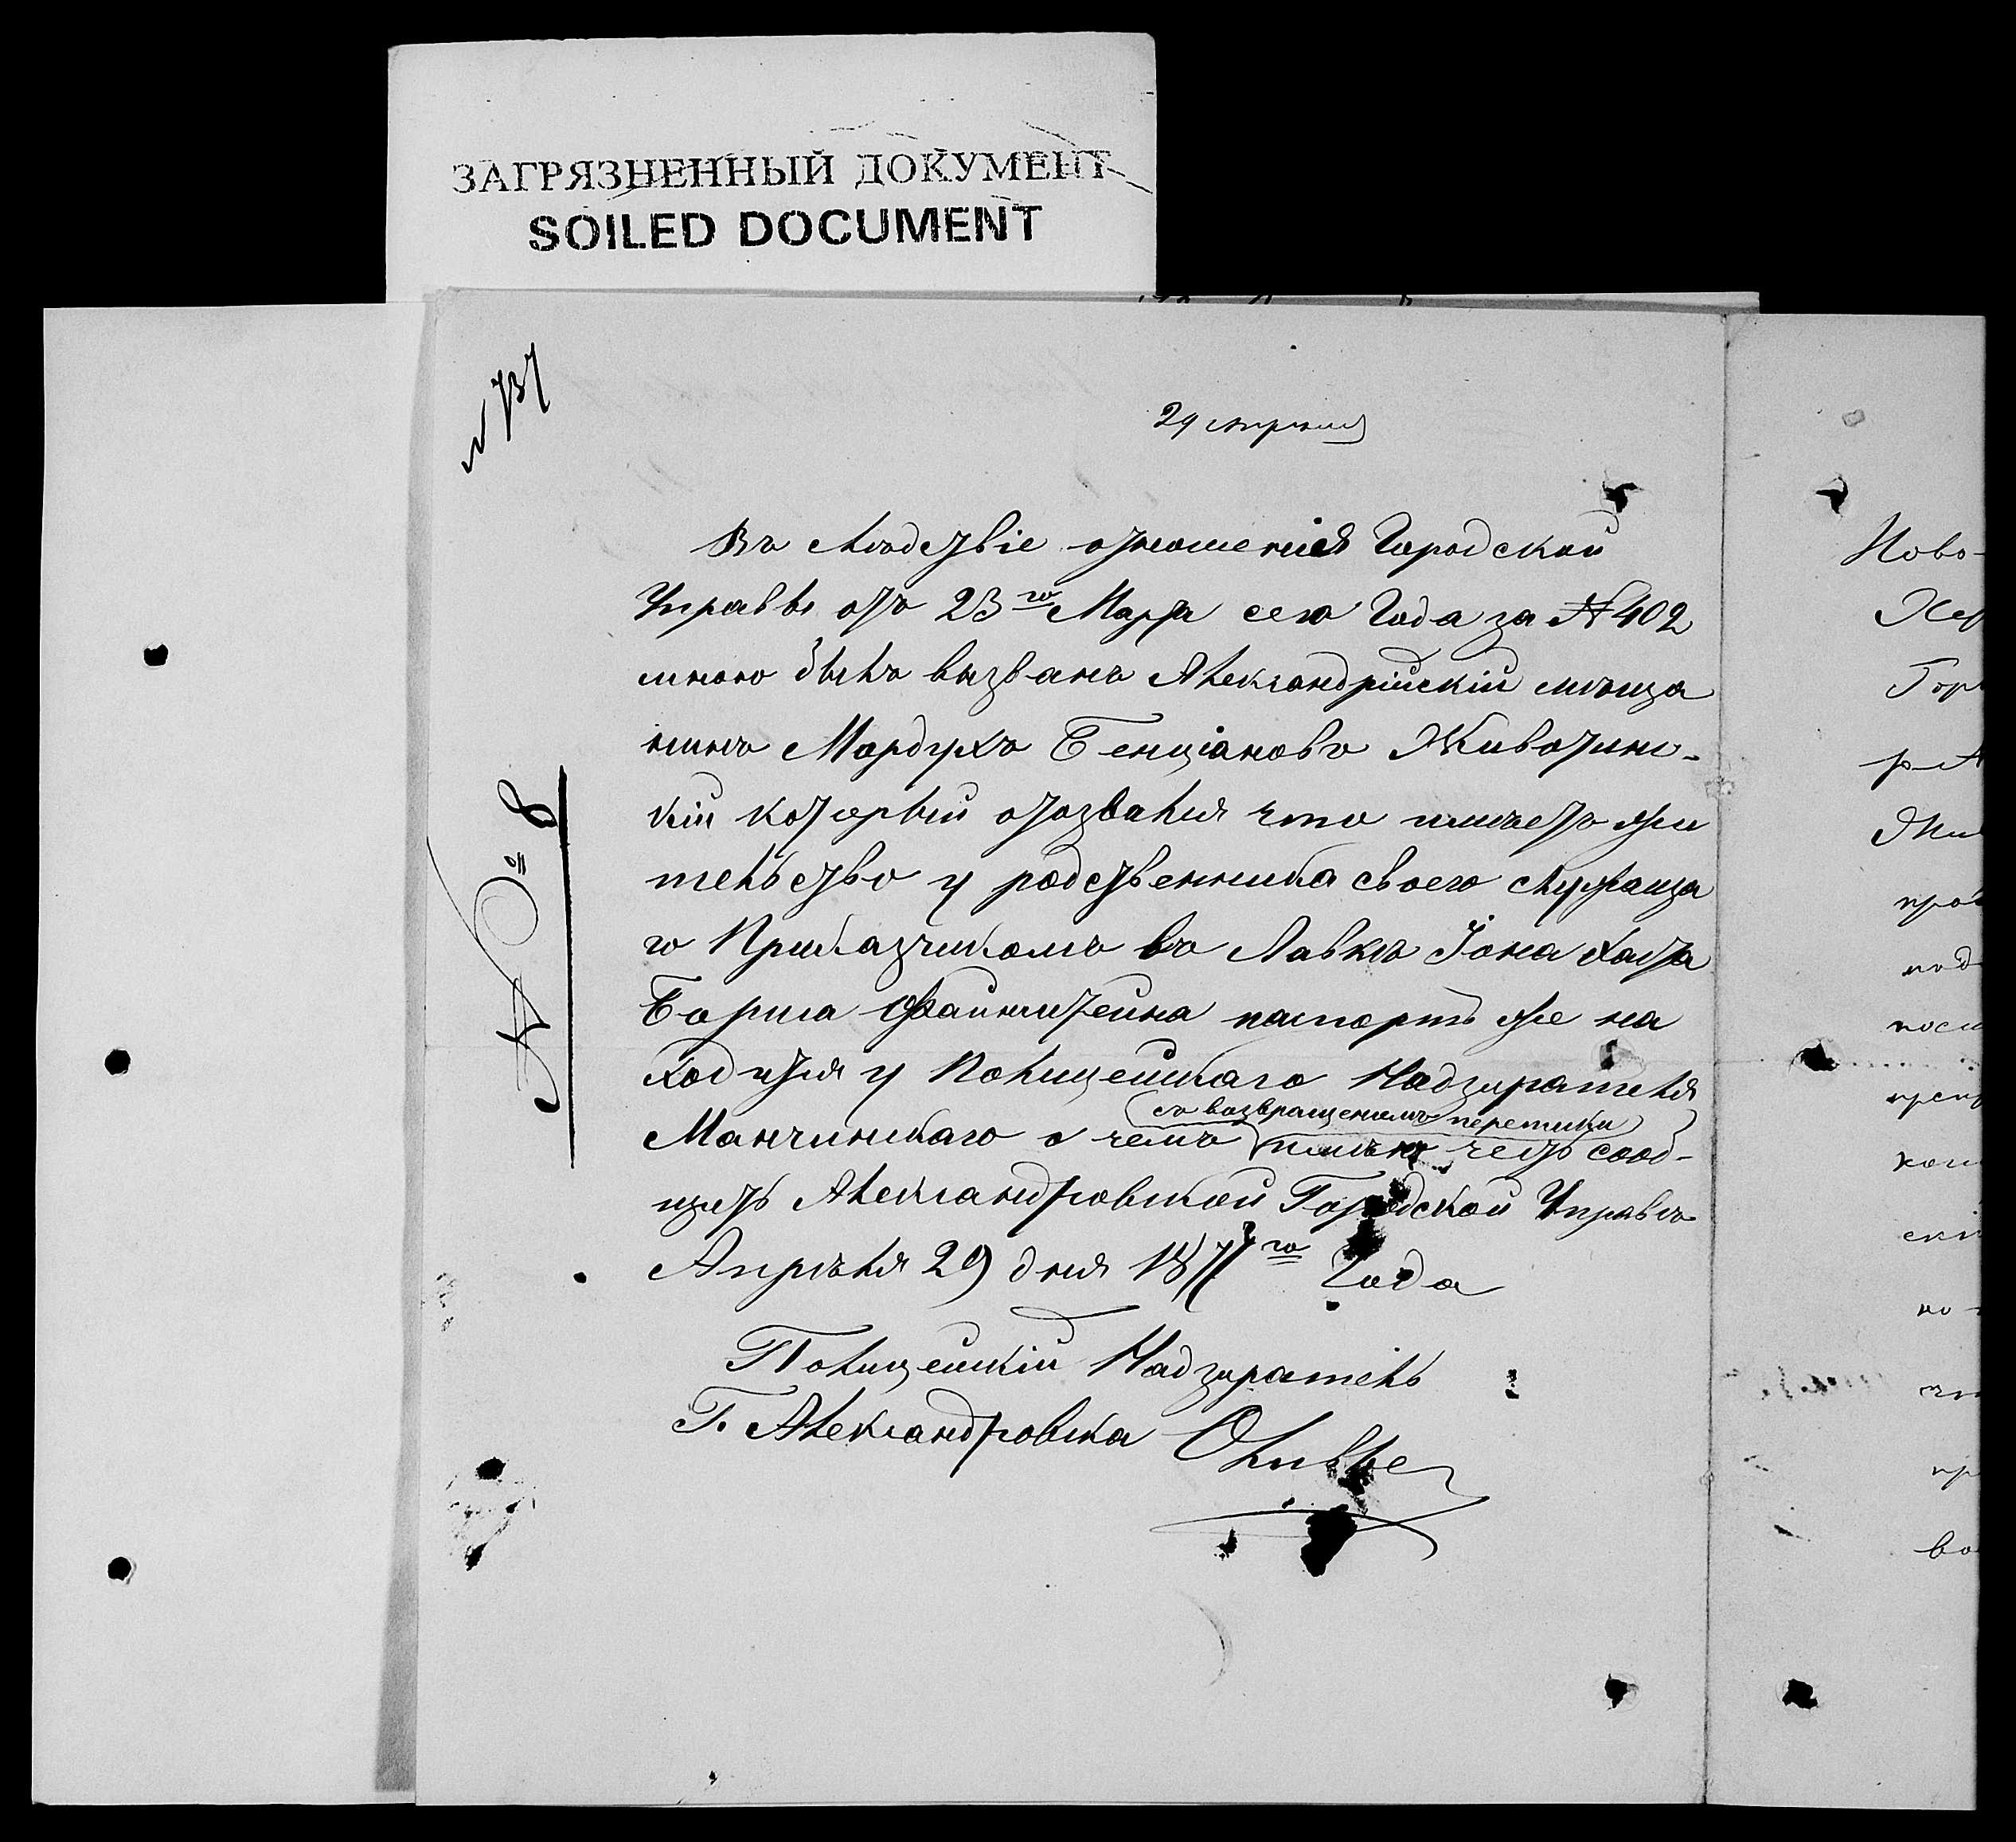 ЗАГРЯЗНЕННЫЙ ДОКУМЕНТ
SOILED DOCUMENT
№ 737
29 апреля
Въ следствіе отношенія Городской
Управы отъ 23го Марта сего Года за № 402
мною былъ вызванъ Александрійскій меща
нинъ Мордухъ Бенціановъ Животин-
кій который отозвался что имеетъ жи
тельство у родственника своего служаща
го Прикащикомъ въ Лавке Іона
Бориса Файнштейна паспортъ же на
ходится у Полицейскаго Надзирателя
Манчинскаго о чемъ
съ возвращеніемъ переписки
имею честь сооб-
щить Александровской Городской Управе
Апреля 29 дня 1877го Года
Полицейскій Надзиратель
Г. Александровска
№ 8
Ново-
Хер
Гор
р-А
Жи